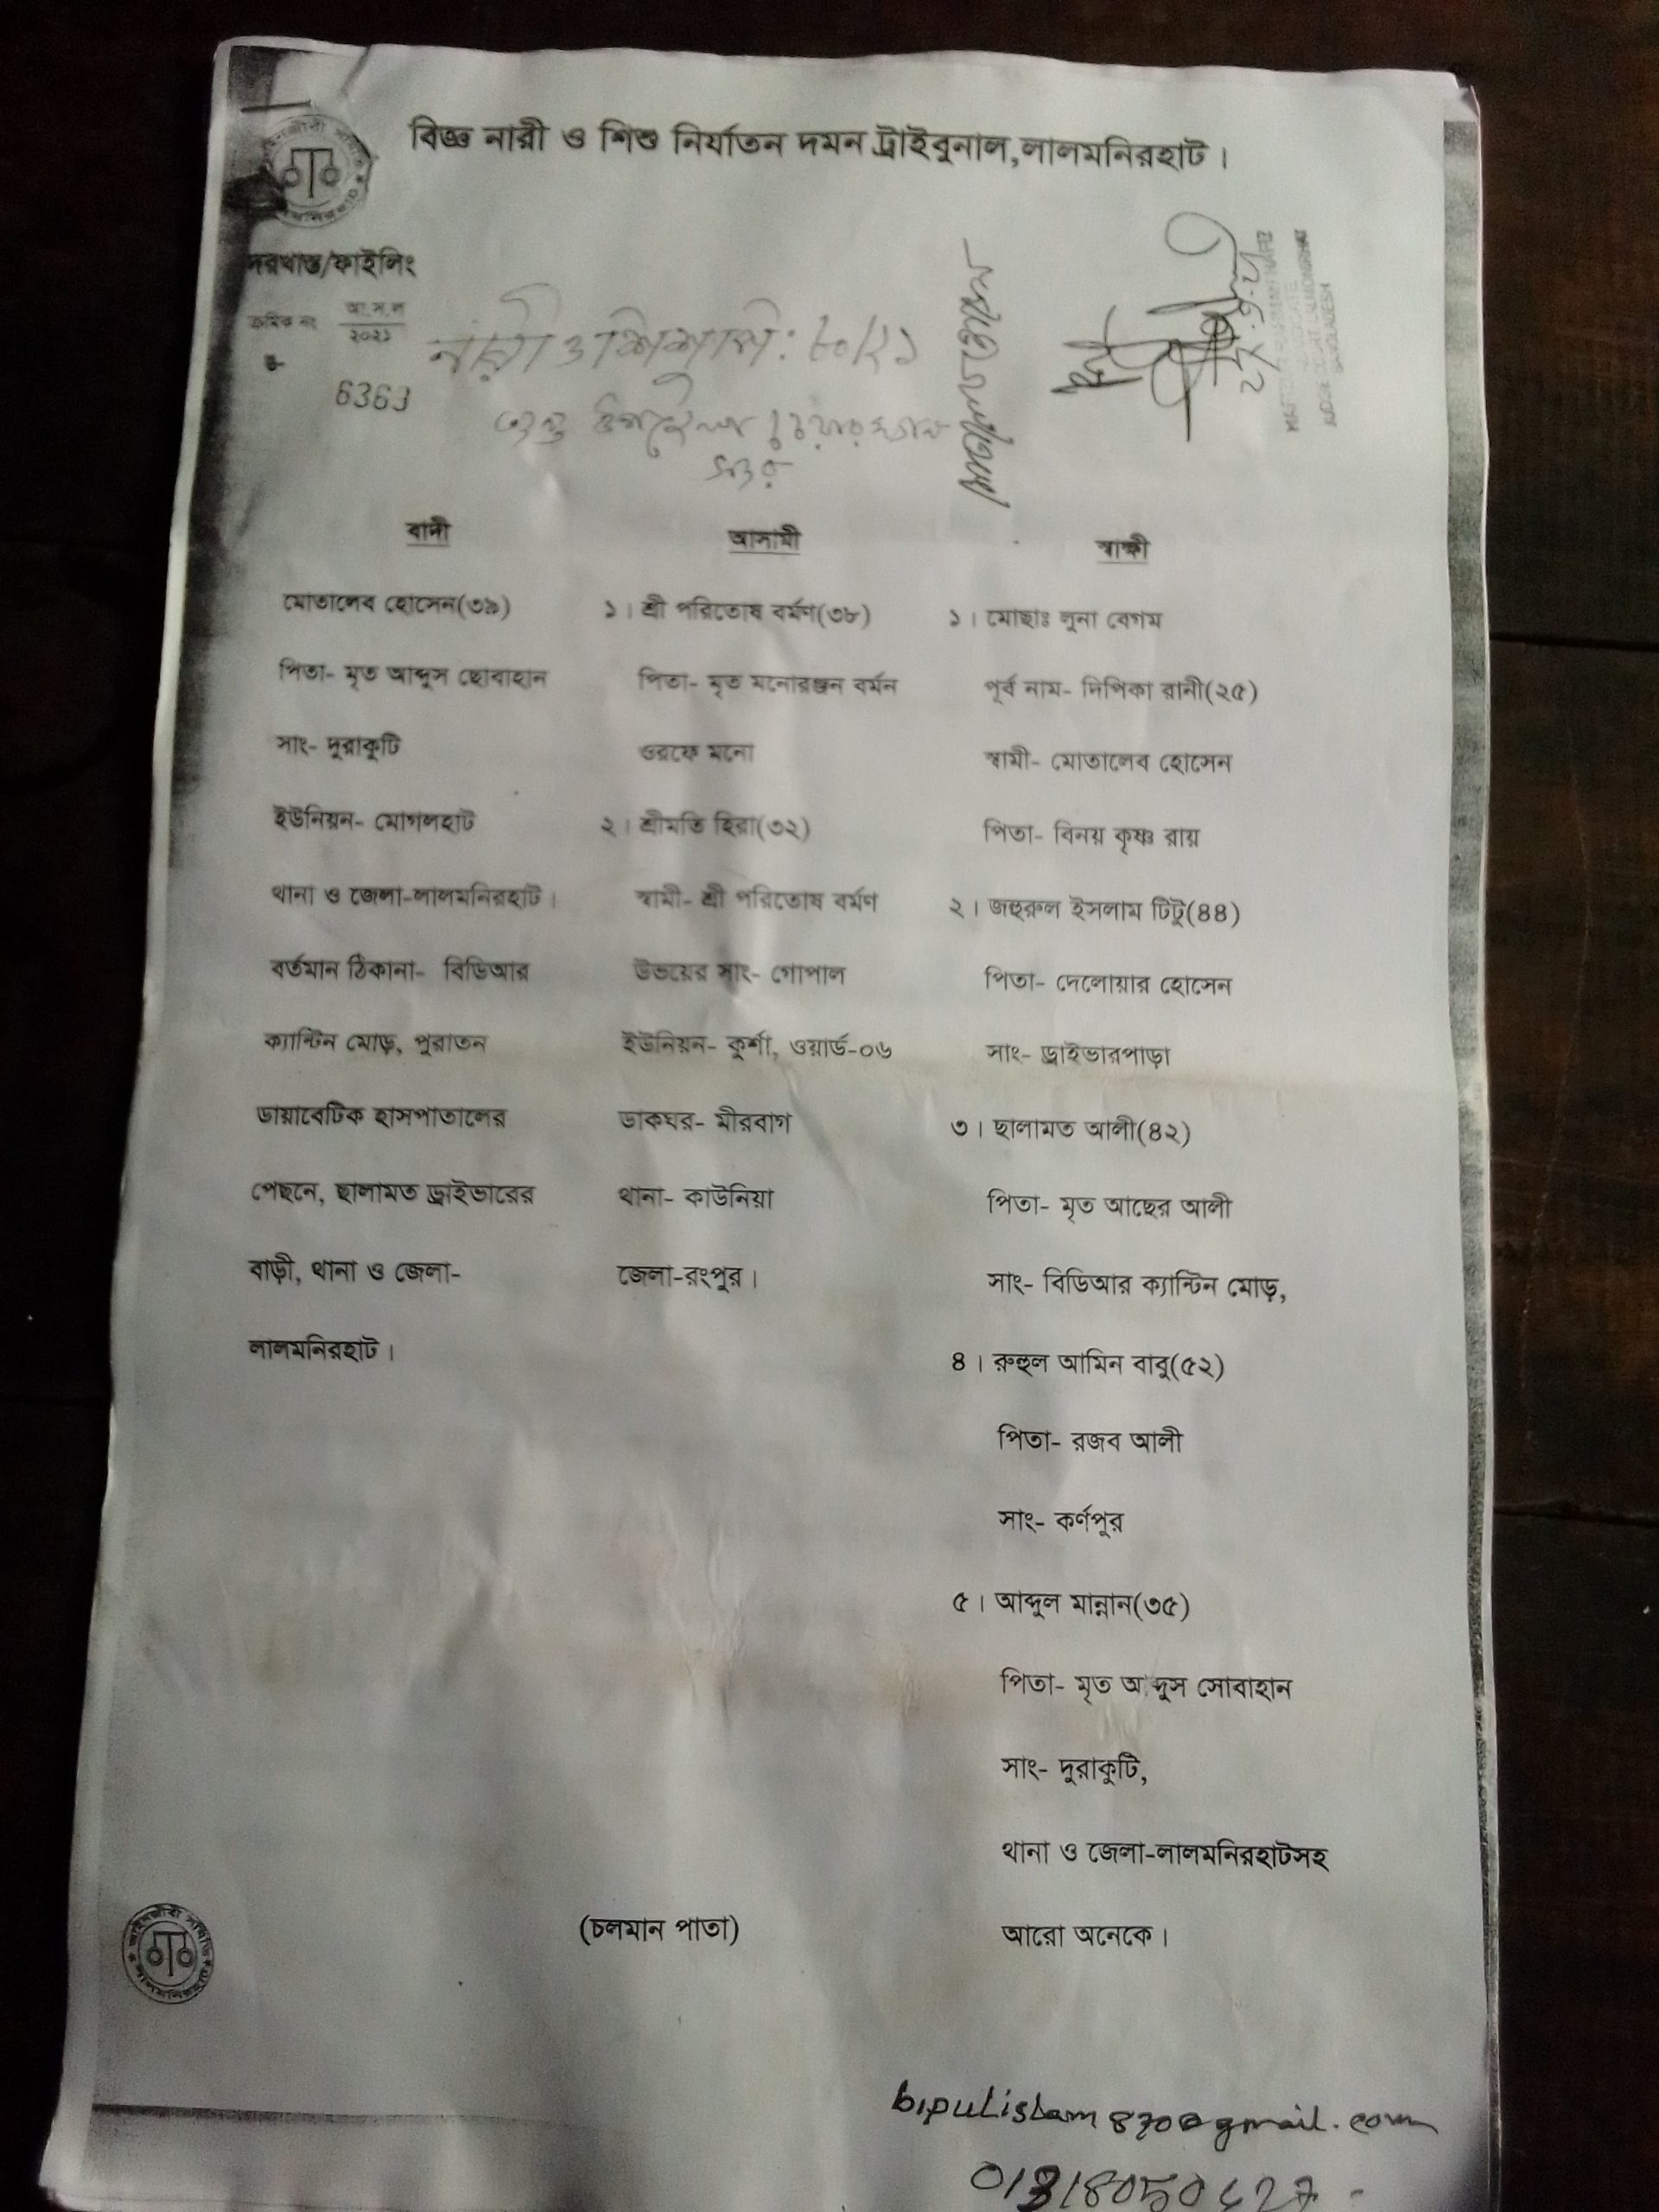 বিজ্ঞ নারী ও শিশু নির্যাতন দমন ট্রাইবুনাল,লালমনিরহাট।
দরখাস্ত/ফাইলিং
ক্রমিক নং
আ.স.ল
২০২১
6363
নারী ও শিশু পি: ৮০/২১
মোতালেব হোসেন
বাদী
মোতালেব হোসেন(৩৯)
পিতা- মৃত আব্দুস ছোবাহান
সাং- দুরাকুটি
ইউনিয়ন- মোগলহাট
থানা ও জেলা-লালমনিরহাট।
বর্তমান ঠিকানা- বিডিআর
ক্যান্টিন মোড়, পুরাতন
ডায়াবেটিক হাসপাতালের
পেছনে, ছালামত ড্রাইভারের
বাড়ী, থানা ও জেলা-
লালমনিরহাট।
আসামী
১। শ্রী পরিতোষ বর্মণ(৩৮)
পিতা- মৃত মনোরঞ্জন বর্মন
ওরফে মনো
২। শ্রীমতি হিরা(৩২)
স্বামী- শ্রী পরিতোষ বর্মণ
উভয়ের সাং- গোপাল
ইউনিয়ন- কুর্শা, ওয়ার্ড-০৬
ডাকঘর- মীরবাগ
থানা- কাউনিয়া
জেলা-রংপুর।
স্বাক্ষী
১। মোছাঃ লুনা বেগম
পূর্ব নাম- দিপিকা রানী(২৫)
স্বামী- মোতালেব হোসেন
পিতা- বিনয় কৃষ্ণ রায়
২। জহুরুল ইসলাম টিটু(৪৪)
পিতা- দেলোয়ার হোসেন
সাং- ড্রাইভারপাড়া
৩। ছালামত আলী(৪২)
পিতা- মৃত আছের আলী
সাং- বিডিআর ক্যান্টিন মোড়,
৪। রুহুল আমিন বাবু(৫২)
পিতা- রজব আলী
সাং- কর্ণপুর
৫। আব্দুল মান্নান(৩৫)
পিতা- মৃত আব্দুস সোবাহান
সাং- দুরাকুটি,
থানা ও জেলা-লালমনিরহাটসহ
আরো অনেকে।
(চলমান পাতা)
আইনজীবী সমিতি
লালমনিরহাট
bipulislam870@gmail.com